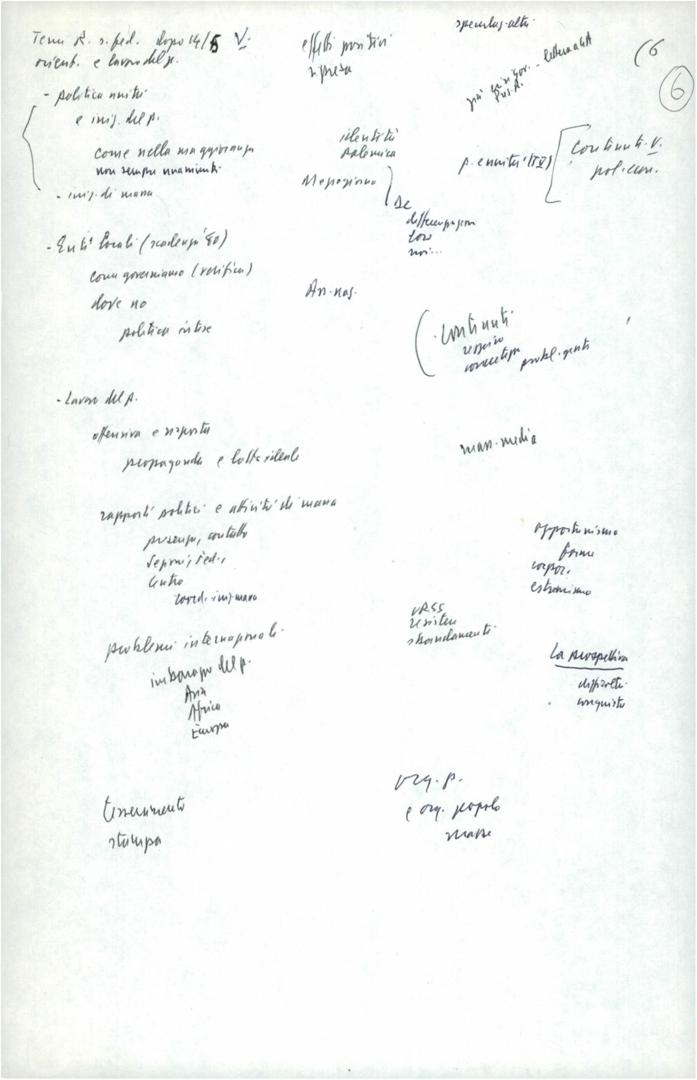 Temi R. s. fed. dopo 14/5 V.
orient. e lavoro del p.
effetti positivi
ripresa
(6
6
- politica unità
e iniz. del p.
come nella maggioranza
non sempre unanimità
- iniz. di massa
identità
polemica
Mezzogiorno
DC
differenziazioni
loro
noi...
continuità V.
pol. econ.
- Enti locali (scadenza '80)
come governiamo (verifica)
dove no
politica intese
Ass. naz.
continuità
respiro
concretezza probl. gente
- Lavoro del p.
offensiva e risposta
propaganda e lotta ideale
mass-media
rapporti politici e attività di massa
presenza, contatto
Sezioni, Fed.,
Centro
coord. iniz. massa
opportunismo
forme
corpor.
estremismo
problemi internazionali
imbarazzo del p.
Asia
Africa
Europa
URSS
resistere
sbandamenti
La prospettiva
difficoltà
conquista
tesseramento
stampa
org. p.
e org. popolo
masse